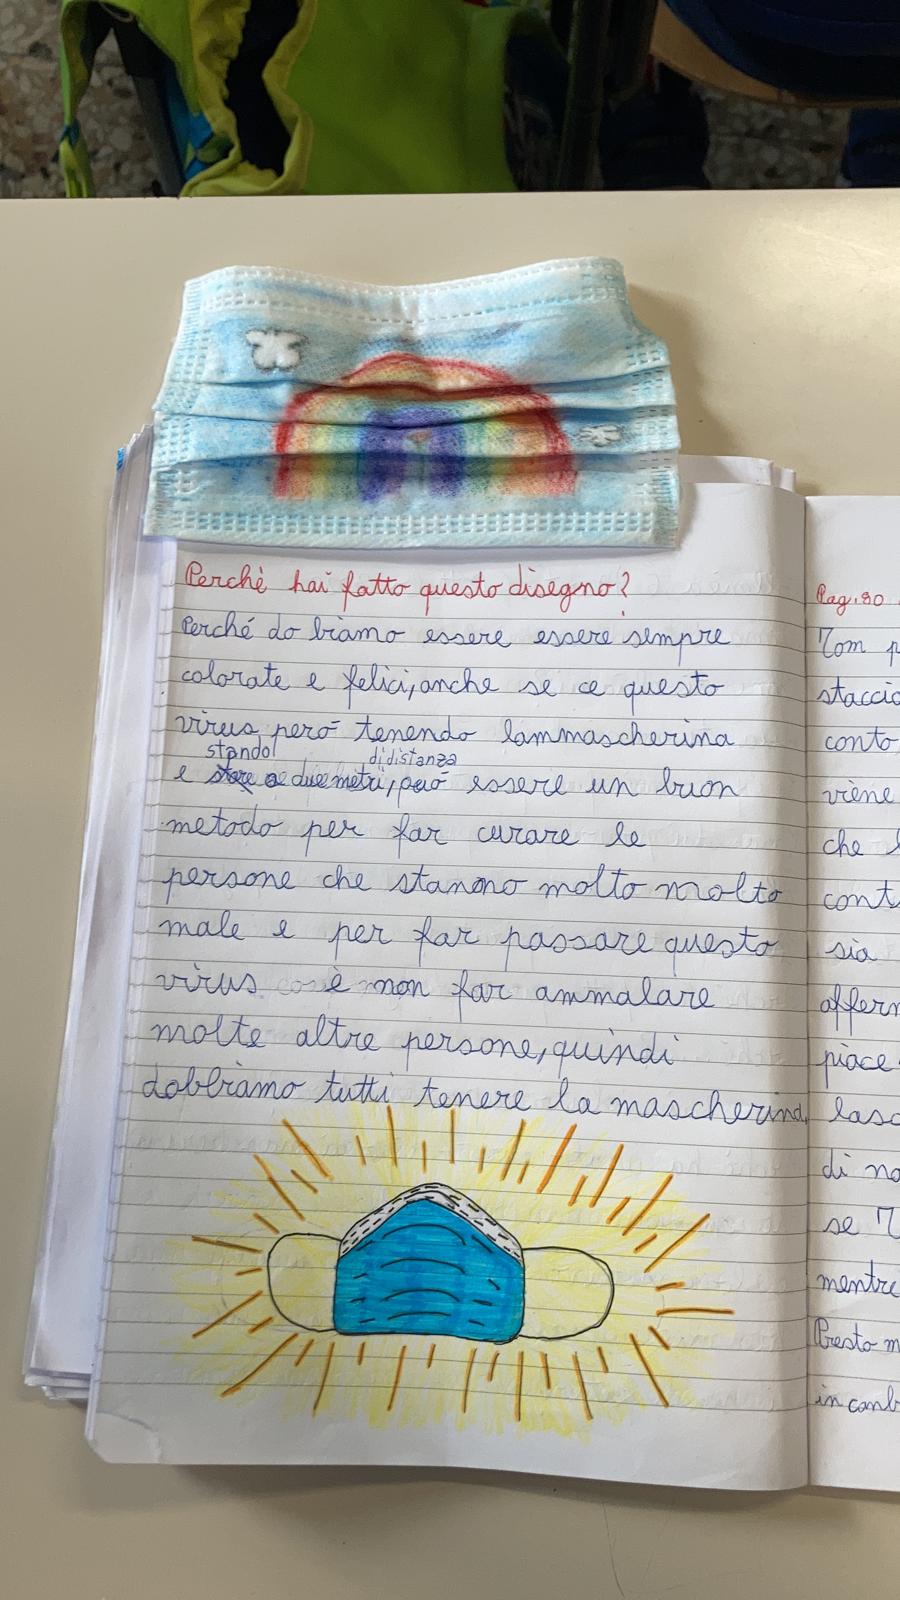 Perchè hai fatto questo disegno?
Perché do biamo essere essere sempre
colorate e felici, anche se ce questo
virus però tenendo lammascherina
stando didistanza
e due metri, però essere un buon
metodo per far curare le
persone che stanno molto molto
male e per far passare questo
virus e non far ammalare
molte altre persone, quindi
dobbiamo tutti tenere la mascherina.
Pag. 80
Tom p
staccio
conto
viene
che l
cont
sia
afferm
piace
lasc
di no
se T
mentre
Presto m
in canb